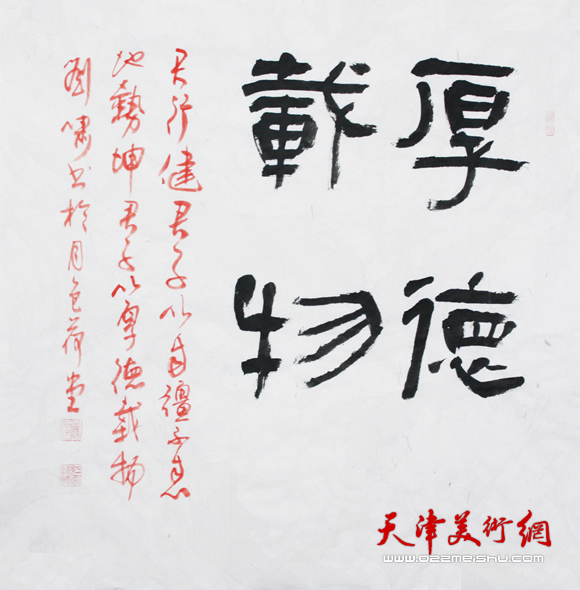 厚德
載物
天行健君子以自彊不息
地勢坤君子以厚德載物
劉嘯書於月色荷堂
天津美術網
www.022meishu.com